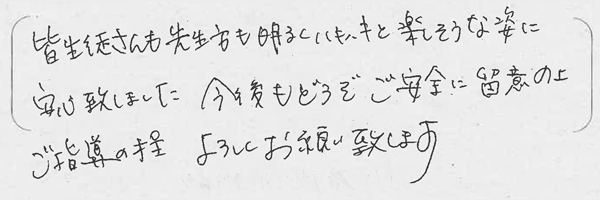 皆生徒さんも先生方も明るくいきいきと楽しそうな姿に
安心致しました 今後もどうぞご安全に留意の上
ご指導の程 よろしくお願い致します